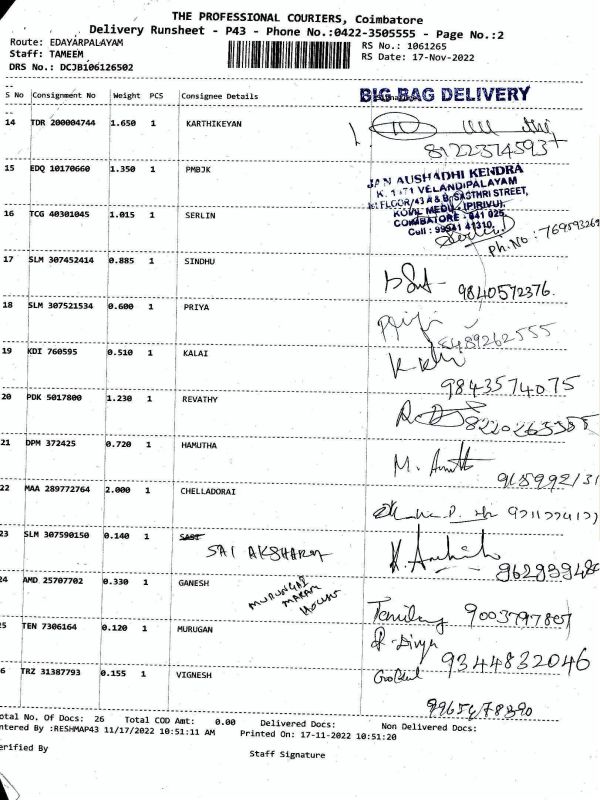 THE PROFESSIONAL COURIERS, Coimbatore
Delivery Runsheet - P43 - Phone No.:0422-3505555 - Page No.:2
Route: EDAYARPALAYAM
RS No.: 1061265
Staff: TAMEEM
RS Date: 17-Nov-2022
DRS No.: DCJB106126502
S No Consignment No Weight PCS Consignee Details
BIG BAG DELIVERY
14 TDR 200004744 1.650 1 KARTHIKEYAN
8122374593
15 EDQ 10170660 1.350 1 PMBJK
JAN AUSHADHI KENDRA
VELANDIPALAYAM
SASTHRI STREET,
KOVIL MEDU, (PIRIVU),
COIMBATORE - 641 025
Cell : 99941 41310
16 TCG 40301045 1.015 1 SERLIN
Ph.No : 769593269
17 SLM 307452414 0.885 1 SINDHU
9840572376.
18 SLM 307521534 0.600 1 PRIYA
9489262555
19 KDI 760595 0.510 1 KALAI
9843574075
20 PDK 5017800 1.230 1 REVATHY
8220263355
21 DPM 372425 0.720 1 HAMUTHA
M.
22 MAA 289772764 2.000 1 CHELLADORAI
23 SLM 307590150 0.140 1
SAI AKSHARA
24 AMD 25707702 0.330 1 GANESH
MURUNGAI
MARAM
HOUSE
9003797807
25 TEN 7306164 0.120 1 MURUGAN
Divya
9344832046
26 TRZ 31387793 0.155 1 VIGNESH
Total No. Of Docs: 26 Total COD Amt: 0.00 Delivered Docs: Non Delivered Docs:
Entered By :RESHMAP43 11/17/2022 10:51:11 AM Printed On: 17-11-2022 10:51:20
Verified By
Staff Signature